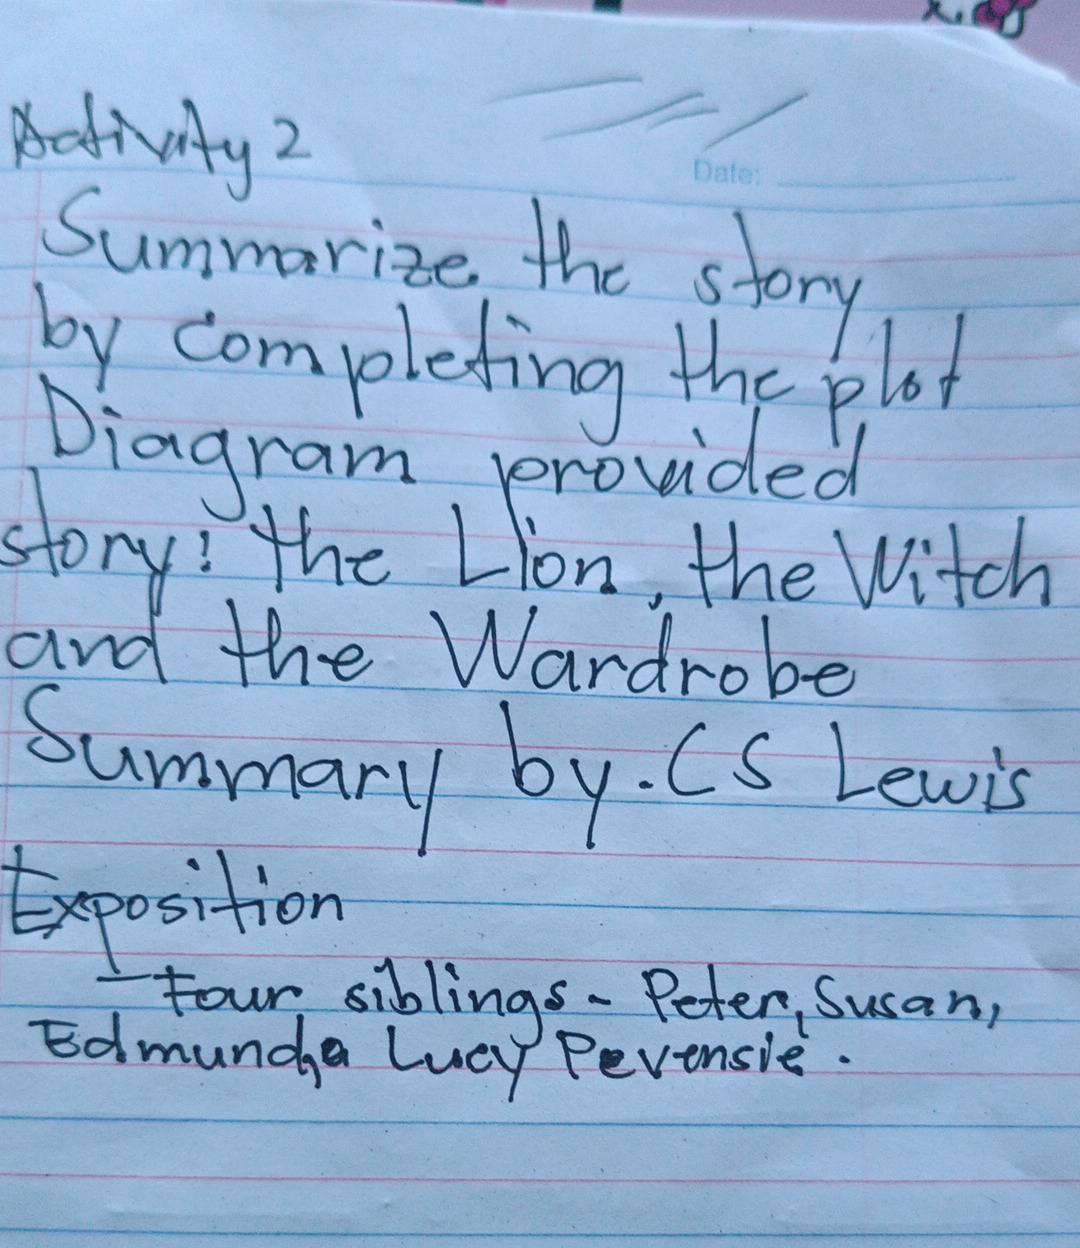 Activity 2
Date:
Summarize the story
by completing the plot
Diagram provided
story: the Lion, the Witch
and the Wardrobe
Summary by. CS Lewis
Exposition
- Four siblings - Peter, Susan,
Edmund, a Lucy Pevensie.